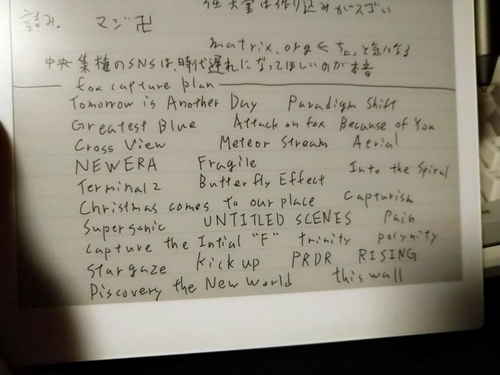 マジ卍
任天堂は作り込みがスゴい
matrix.org ← ちょっと気になる
中央集権のSNSは、時代遅れになってほしいのが本音
fox capture plan
Tomorrow is Another Day Paradigm Shift
Greatest Blue Attack on fox Because of You
Cross View Meteor Stream Aerial
NEWERA Fragile Into the Spiral
Terminal 2 Butterfly Effect
Christmas comes to our place Capturism
Supersonic UNTITLED SCENES Pain
Capture the Intial "F" trinity polymity
Stargaze Kick up PRDR RISING
Discovery the New World this wall